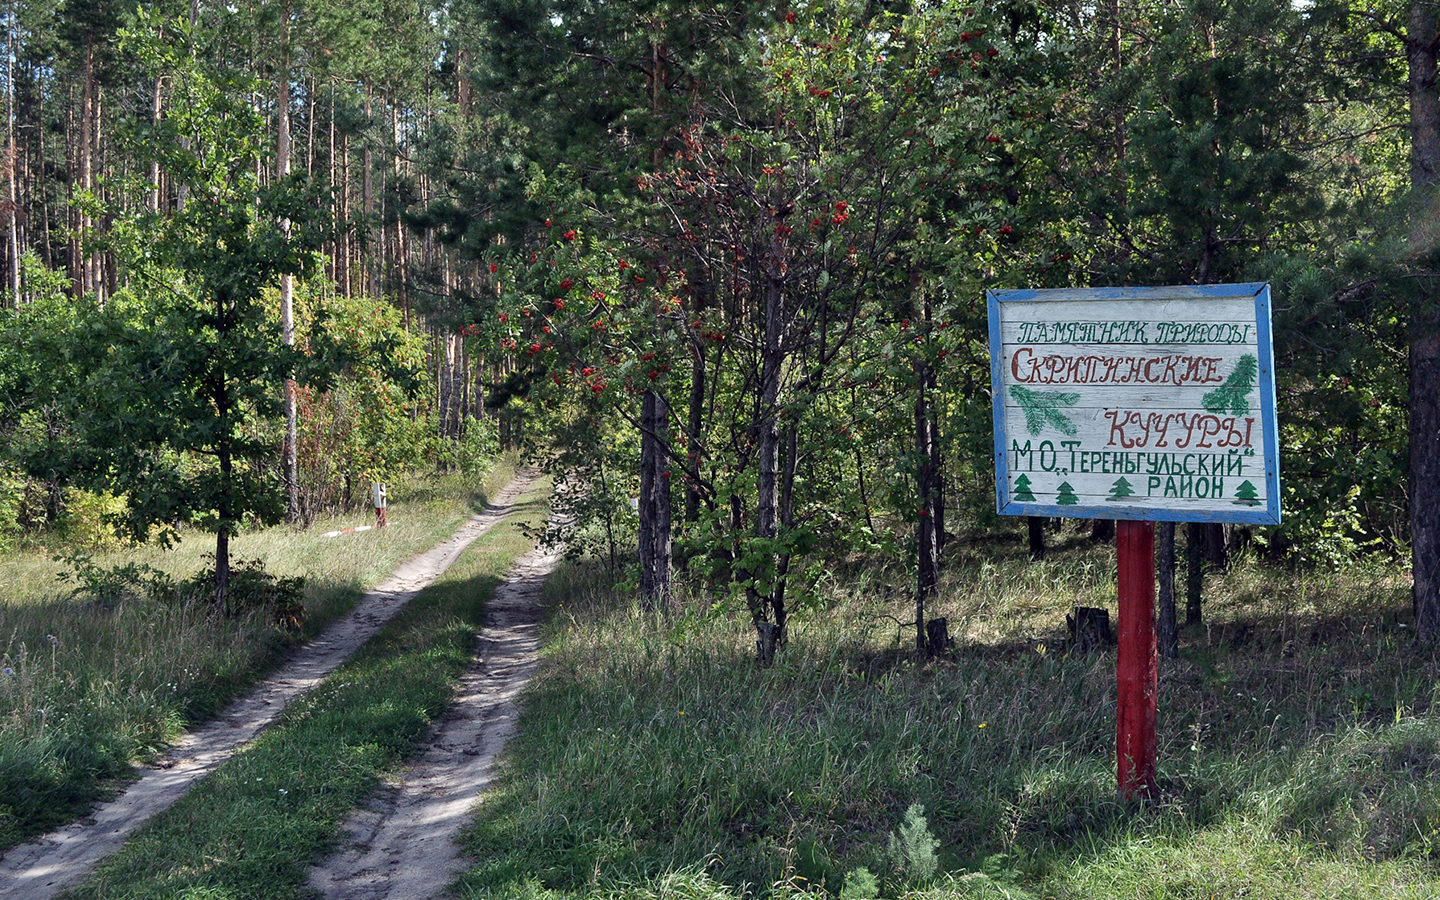 ПАМЯТНИК ПРИРОДЫ
СКРИПИНСКИЕ
КУЧУРЫ
МО „ТЕРЕНЬГУЛЬСКИЙ"
РАЙОН